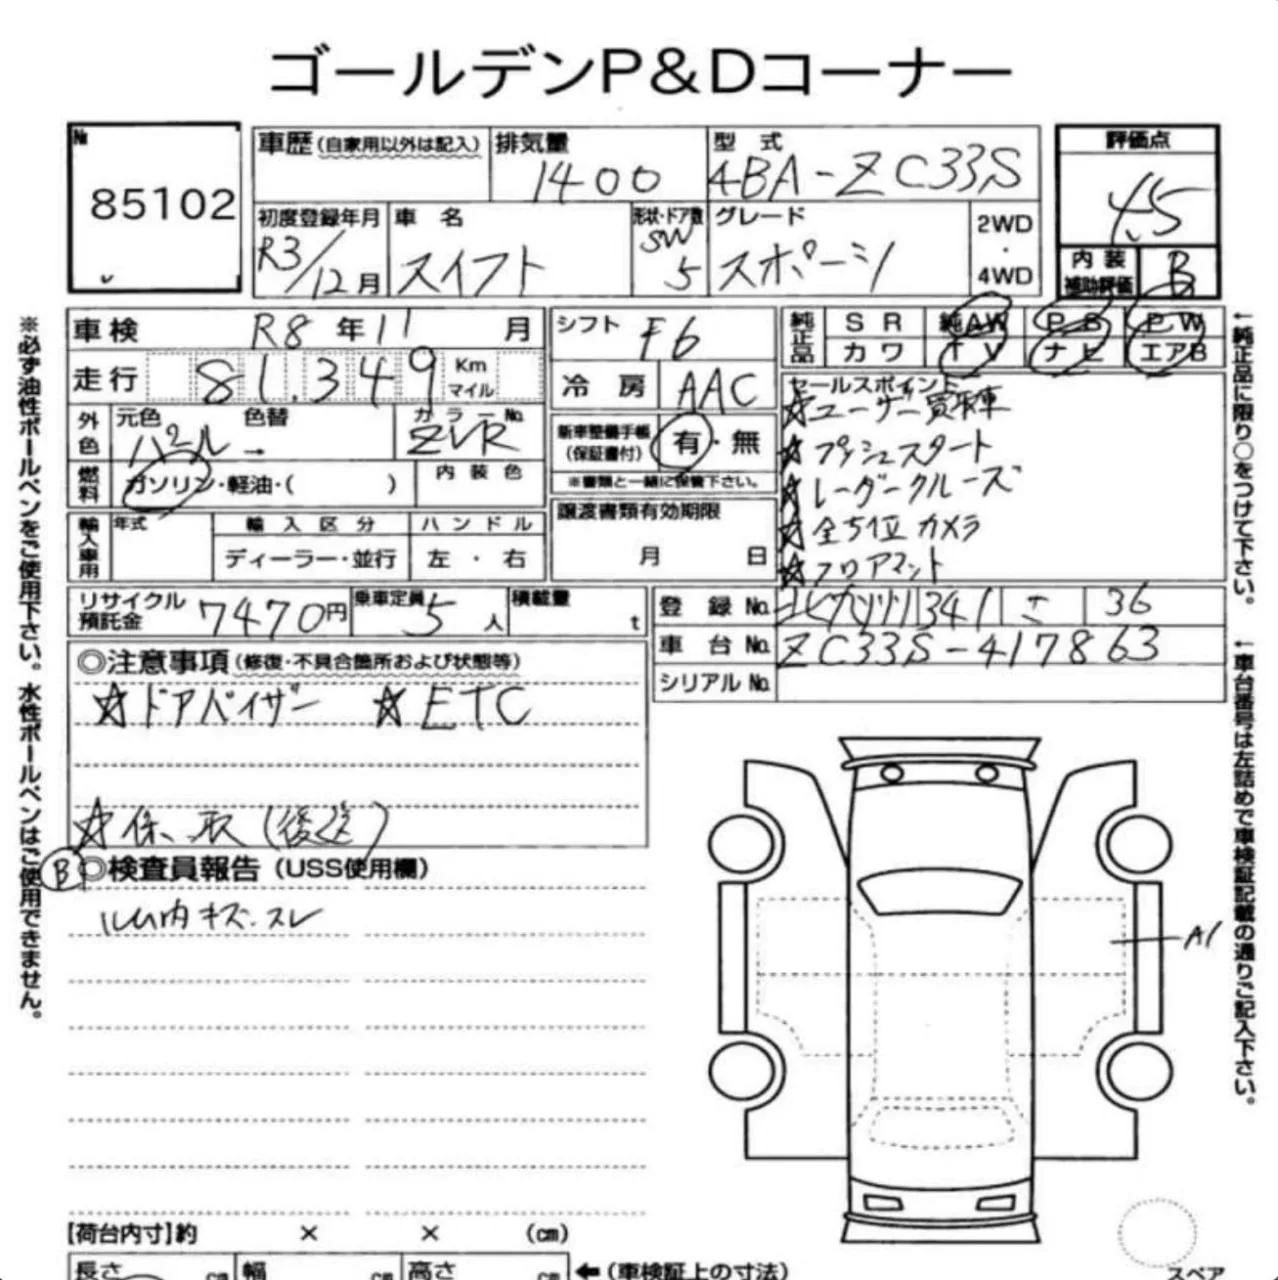 ゴールデンP&Dコーナー
№ 85102
車歴(自家用以外は記入) 排気量 1400 型式 4BA-ZC33S
初度登録年月 R3/12月 車名 スイフト 形状・ドア数 SW 5 グレード スポーツ 2WD・4WD
評価点 4.5
内装補助評価 B
車検 R8年11月
走行 81,349 Km マイル
外色 元色 パール 色替 → カラーNo. ZVR
燃料 ガソリン・軽油・( ) 内装色
輸入車用 年式 輸入区分 ハンドル
ディーラー・並行 左・右
シフト F6
冷房 AAC
新車整備手帳(保証書付) 有・無
※書類と一緒に保管下さい。
譲渡書類有効期限
月 日
純正品 SR 純AW PS PW
カワ TV ナビ エアB
セールスポイント
☆ユーザー買取車
☆プッシュスタート
☆レーダークルーズ
☆全方位カメラ
☆フロアマット
リサイクル預託金 7470円 乗車定員 5人 積載量 t
登録No. 北九州 341 さ 36
車台No. ZC33S-417863
シリアルNo.
◎注意事項(修復・不具合箇所および状態等)
☆ドアバイザー ☆ETC
☆保、取(後送)
B ◎検査員報告(USS使用欄)
ルム内キズ.スレ
A1
【荷台内寸】約 × × (cm)
長さ cm 幅 cm 高さ cm ←(車検証上の寸法)
スペア
※必ず油性ボールペンをご使用下さい。水性ボールペンはご使用できません。
←純正品に限り○をつけて下さい。
←車台番号は左詰めで車検証記載の通りご記入下さい。